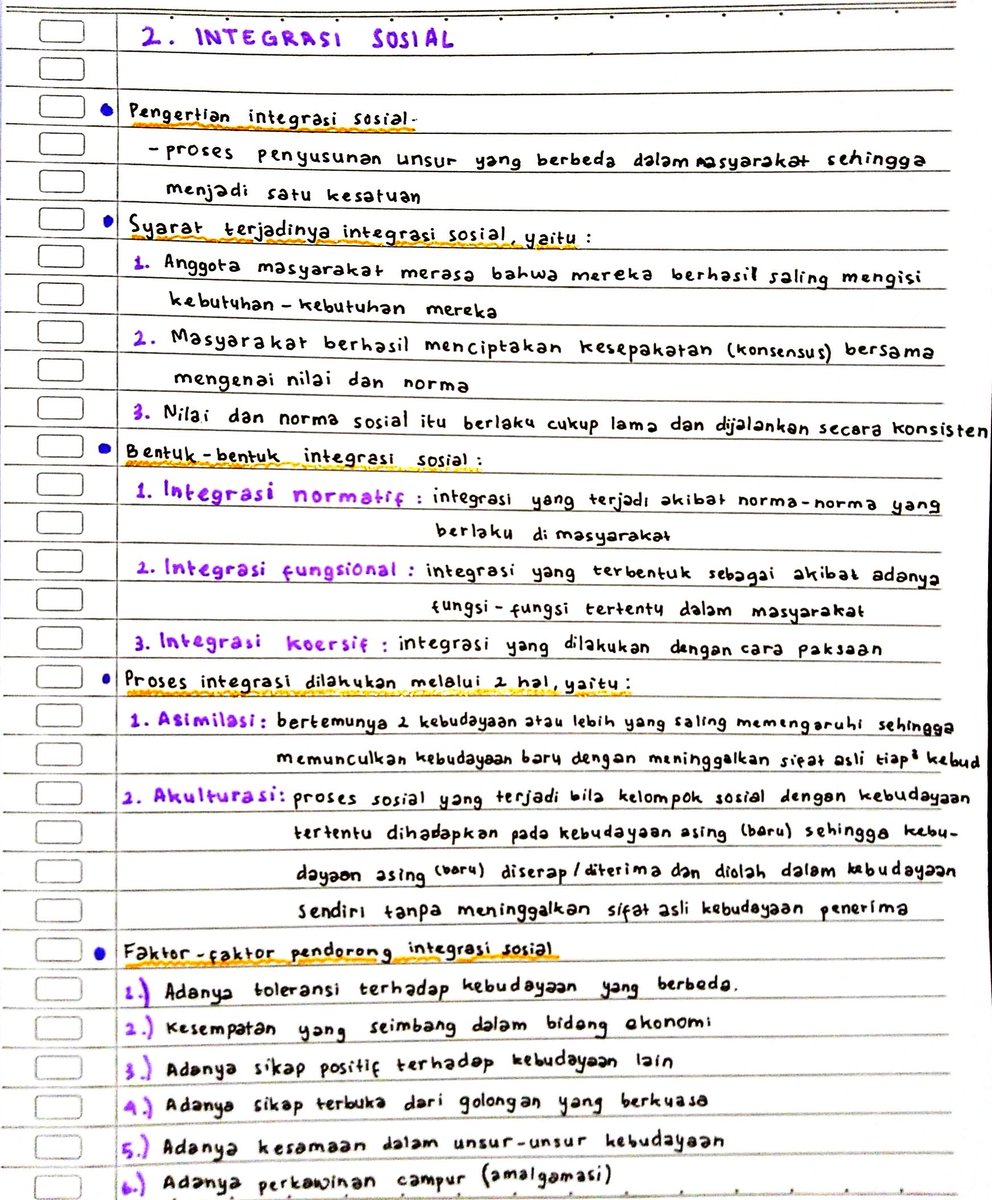 2. INTEGRASI SOSIAL
• Pengertian integrasi sosial-
- proses penyusunan unsur yang berbeda dalam masyarakat sehingga
menjadi satu kesatuan
• Syarat terjadinya integrasi sosial, yaitu :
1. Anggota masyarakat merasa bahwa mereka berhasil saling mengisi
kebutuhan-kebutuhan mereka
2. Masyarakat berhasil menciptakan kesepakatan (konsensus) bersama
mengenai nilai dan norma
3. Nilai dan norma sosial itu berlaku cukup lama dan dijalankan secara konsisten
• Bentuk-bentuk integrasi sosial :
1. Integrasi normatif : integrasi yang terjadi akibat norma-norma yang
berlaku di masyarakat
2. Integrasi fungsional : integrasi yang terbentuk sebagai akibat adanya
fungsi-fungsi tertentu dalam masyarakat
3. Integrasi koersif : integrasi yang dilakukan dengan cara paksaan
• Proses integrasi dilakukan melalui 2 hal, yaitu :
1. Asimilasi : bertemunya 2 kebudayaan atau lebih yang saling memengaruhi sehingga
memunculkan kebudayaan baru dengan meninggalkan sifat asli tiap² kebud
2. Akulturasi : proses sosial yang terjadi bila kelompok sosial dengan kebudayaan
tertentu dihadapkan pada kebudayaan asing (baru) sehingga kebu-
dayaan asing (baru) diserap/diterima dan diolah dalam kebudayaan
sendiri tanpa meninggalkan sifat asli kebudayaan penerima
• Faktor-faktor pendorong integrasi sosial
1.) Adanya toleransi terhadap kebudayaan yang berbeda.
2.) Kesempatan yang seimbang dalam bidang ekonomi
3.) Adanya sikap positif terhadap kebudayaan lain
4.) Adanya sikap terbuka dari golongan yang berkuasa
5.) Adanya kesamaan dalam unsur-unsur kebudayaan
6.) Adanya perkawinan campur (amalgamasi)